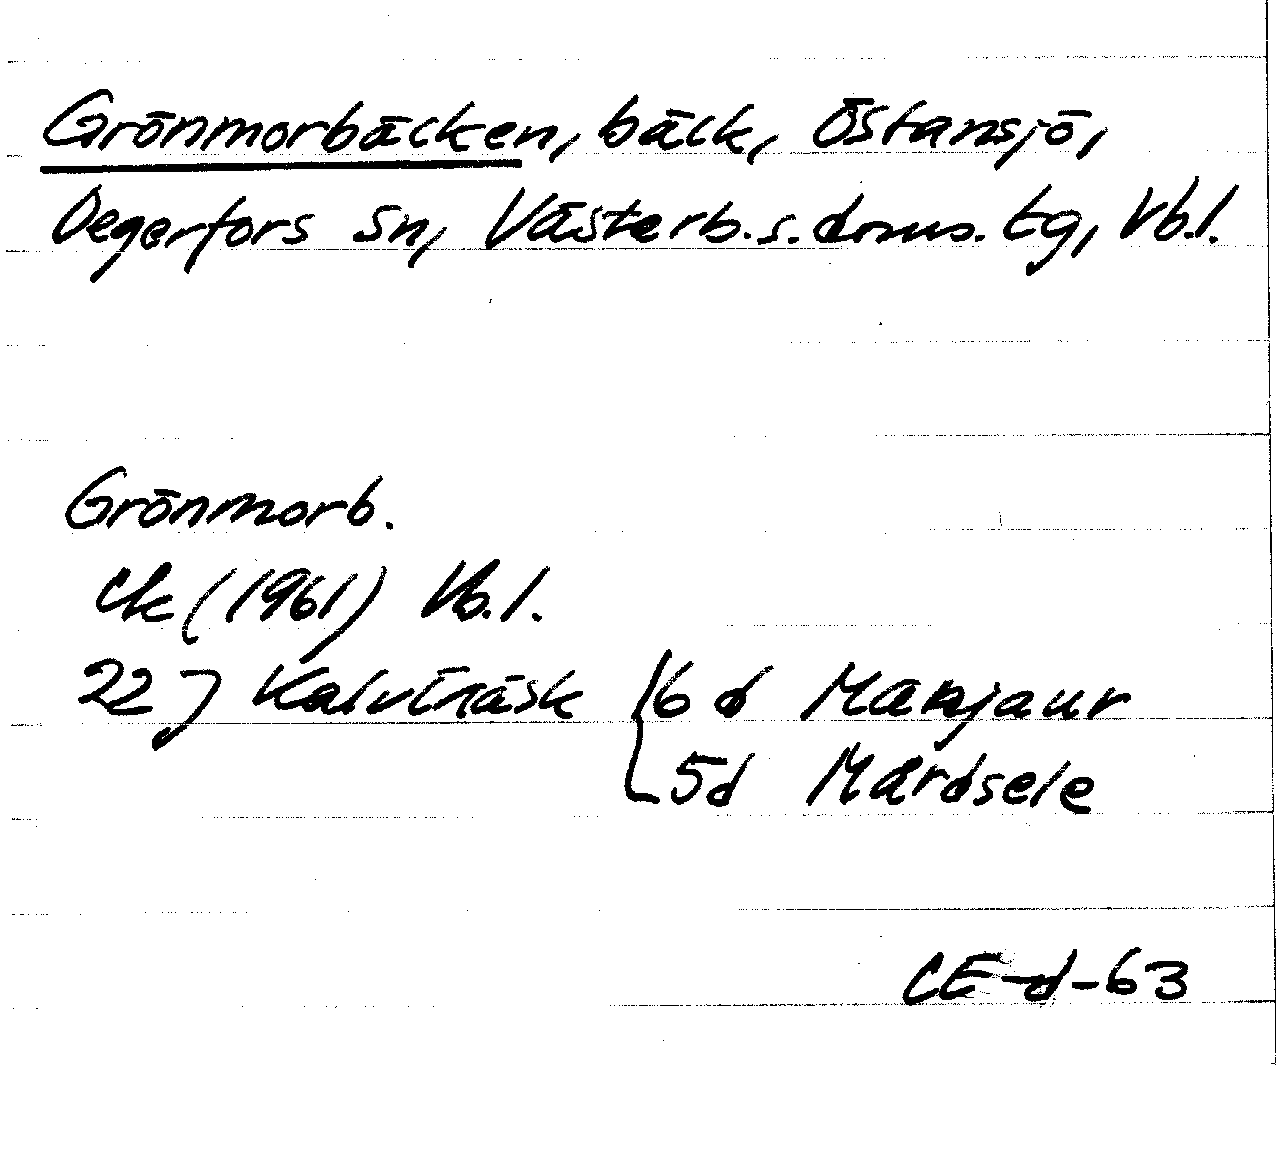 Grönmorbäcken, bäck, Östansjö,
Degerfors sn, Västerb.s. doms. tg, Vb.l.
Grönmorb.
ek (1961) Vb.l.
22 J Kalvträsk { 6 d Manjaur
5d Mårdsele
CE-d-63